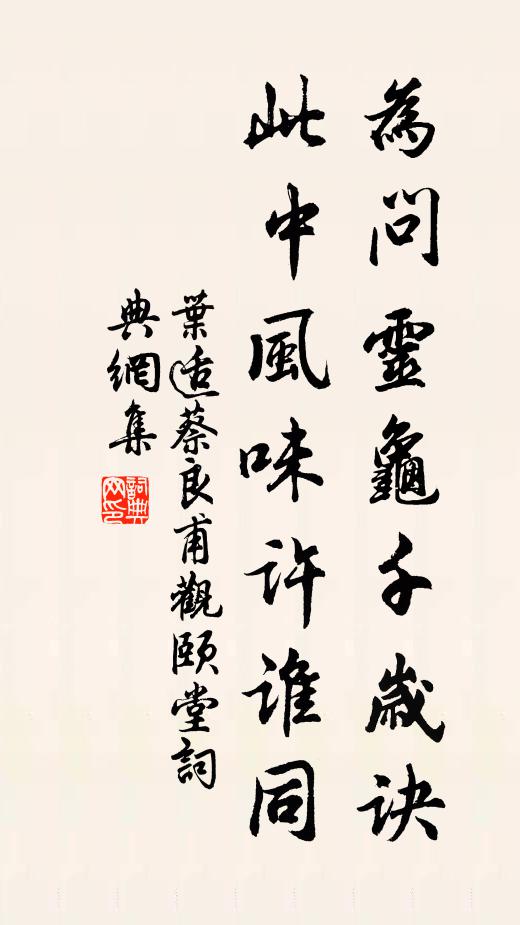 為問靈龜千歲訣
此中風味許誰同
葉适蔡良甫觀頤堂詞
典網集
詞典網印